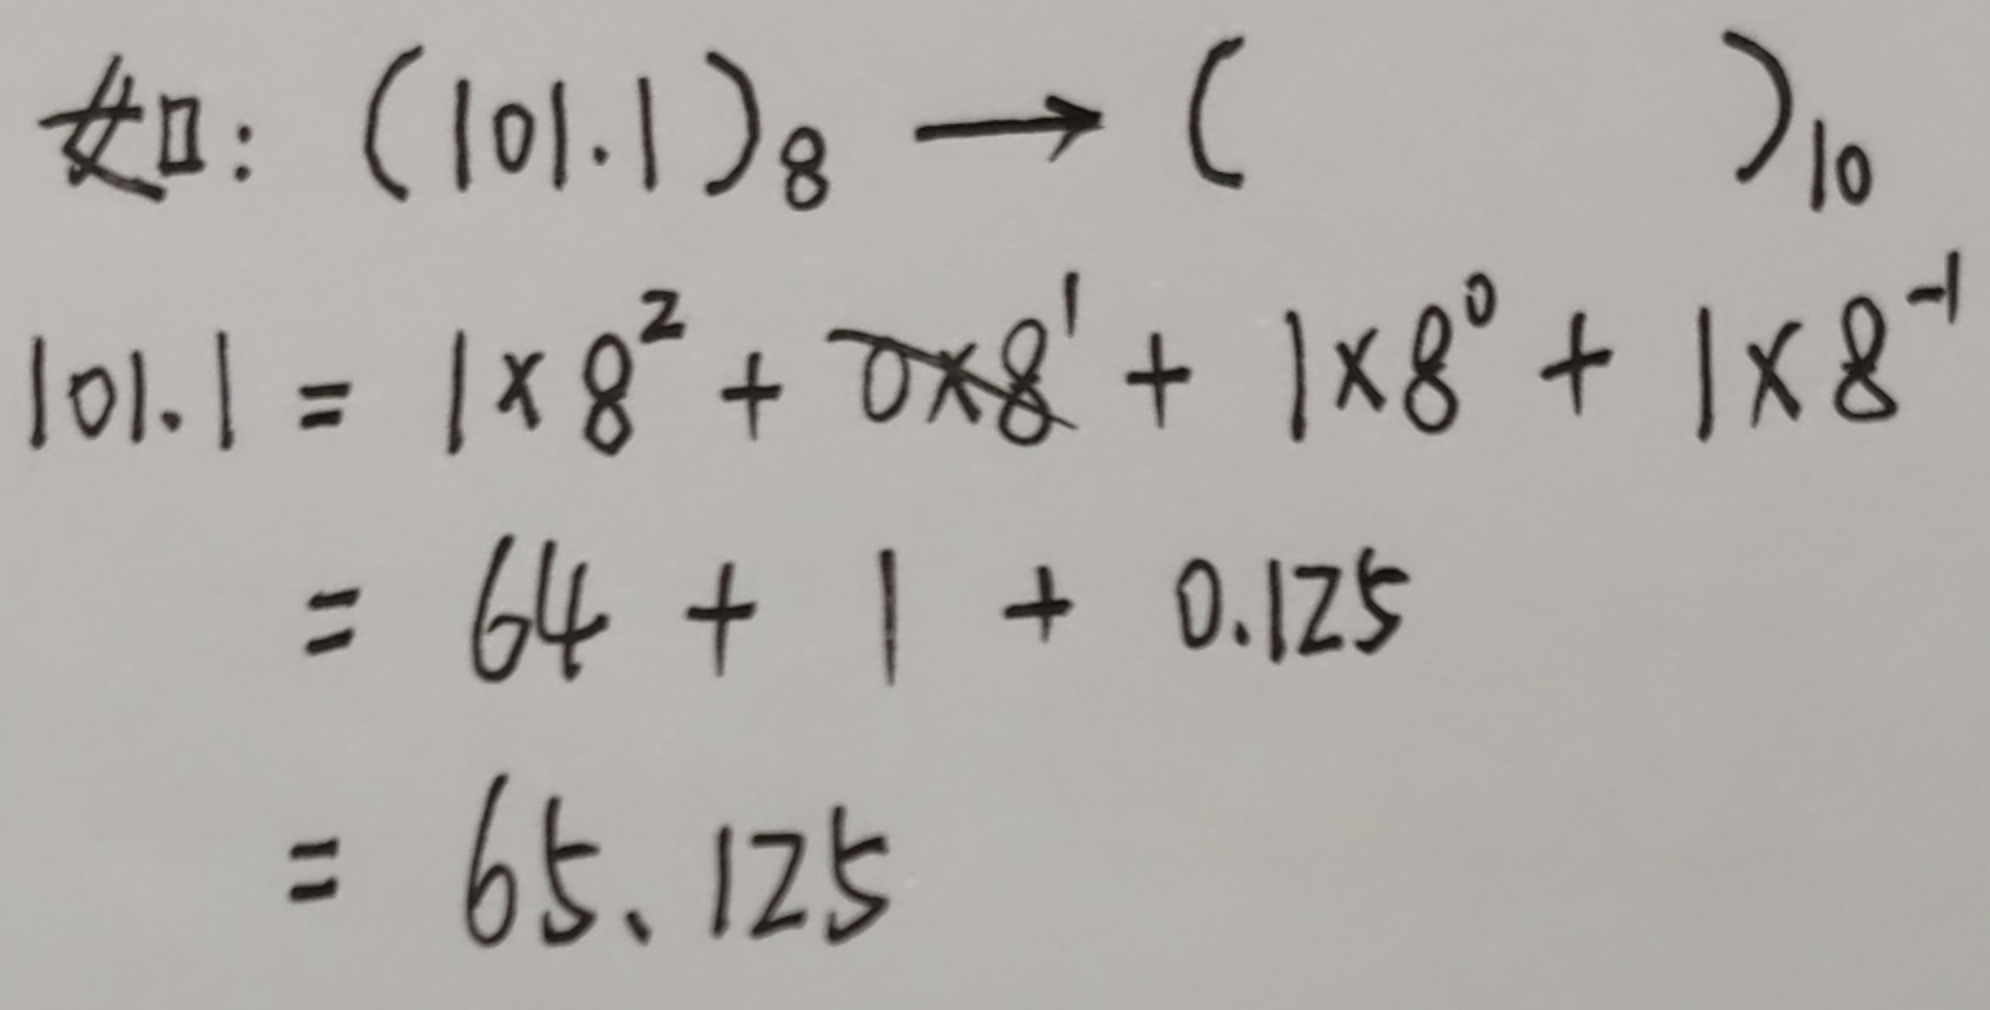 如: (101.1)₈ → (      )₁₀
101.1 = 1×8² + 0×8¹ + 1×8⁰ + 1×8⁻¹
= 64 + 1 + 0.125
= 65.125